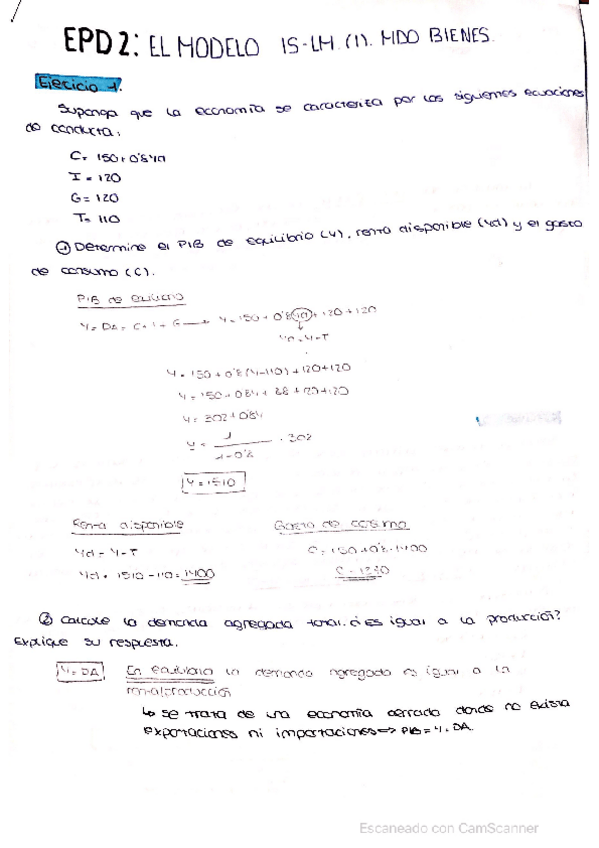 EPD 2: EL MODELO IS-LM. (I). MDO BIENES.
Ejercicio 1.
Suponga que la economía se caracteriza por las siguientes ecuaciones
de conducta:
C= 150+0'8Yd
I = 120
G= 120
T= 110
① Determine el PIB de equilibrio (Y), renta disponible (Yd) y el gasto
de consumo (C).
PIB de equilibrio
Y= DA = C+I+G → Y=150+0'8Yd+120+120
Yd=Y-T
Y= 150+0'8(Y-110)+120+120
Y= 150+0'8Y+ 88 +120+120
Y= 302+0'8Y
Y= 1 · 302
1-0'8
Y=1510
Renta disponible
Yd= Y-T
Yd= 1510-110=1400
Gasto de consumo
C=150+0'8·1400
C=1270
② Calcule la demanda agregada total. ¿Es igual a la producción?
Explique su respuesta.
Y=DA
En equilibrio la demanda agregada es igual a la
producción
↳ se trata de una economía cerrada donde no
exportaciones ni importaciones => PIB = Y = DA.
Escaneado con CamScanner